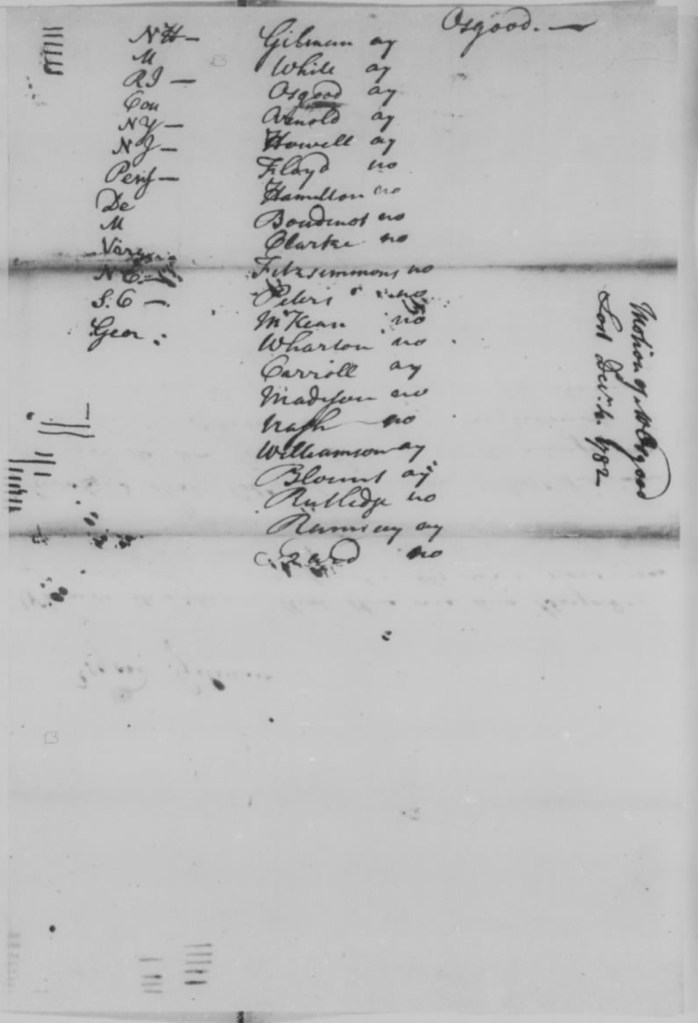 Osgood. —
NH — Gilman ay
M White ay
RI — Osgood ay
Con Arnold ay
NY — Howell ay
NJ — Floyd no
Pensy — Hamilton no
De Boudinot no
M Clarke no
Virg Fitzsimmons no
N C — Peters no
S. C — McKean no
Geor : Wharton no
Carroll ay
Madison no
Nash no
Williamson ay
Blount ay
Rutledge no
Ramsay ay
no
Motion of Mr Osgood
Lost Decr. 4. 1782